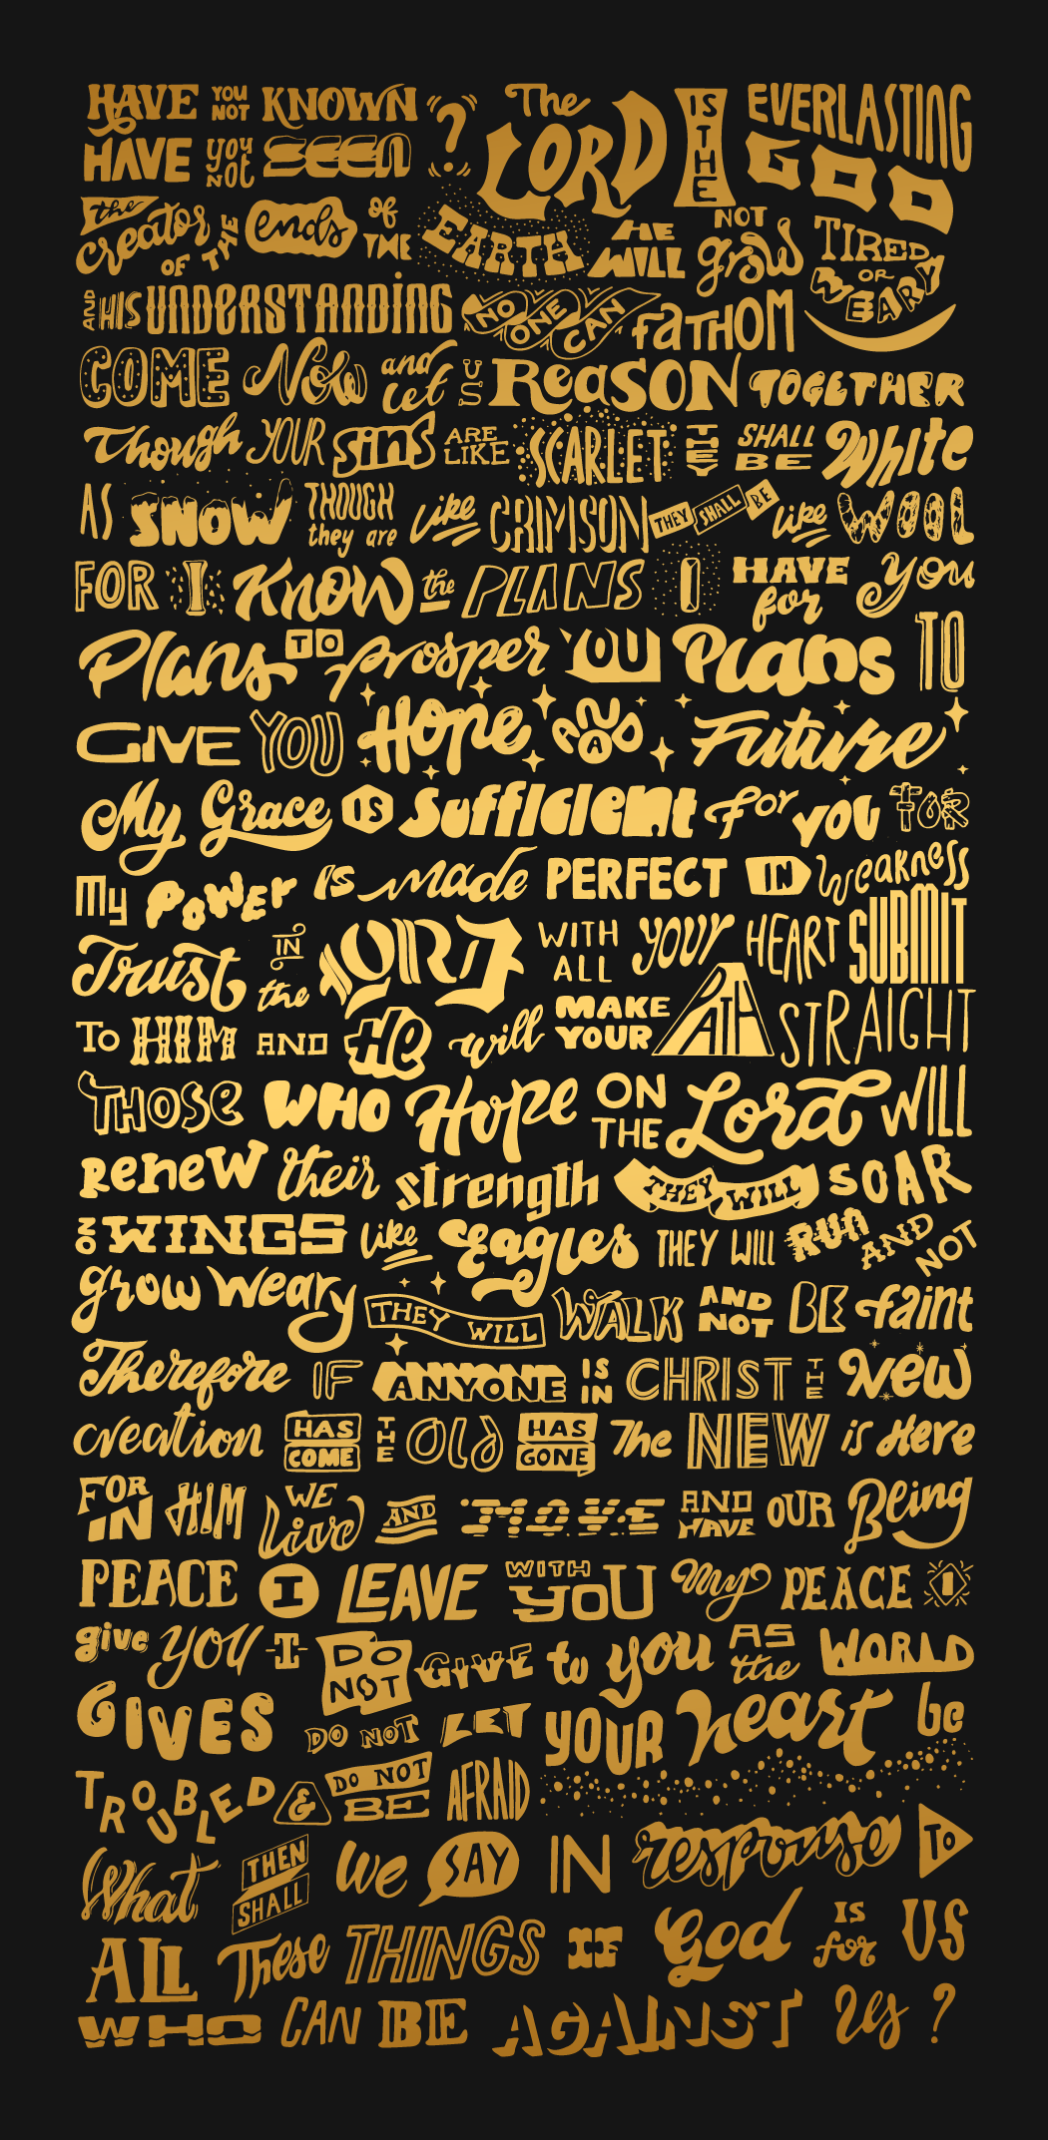 HAVE YOU NOT KNOWN
HAVE YOU NOT SEEN ? The LORD IS THE EVERLASTING GOD
the creator OF THE ends of THE EARTH HE WILL NOT grow TIRED OR WEARY
AND HIS UNDERSTANDING NO ONE CAN FATHOM
COME Now and let US REASON TOGETHER
Though YOUR SINS ARE LIKE SCARLET THEY SHALL BE White
AS SNOW THOUGH they are like CRIMSON THEY SHALL BE like WOOL
FOR I KNOW the PLANS I HAVE for you
Plans TO prosper YOU Plans TO
GIVE YOU Hope AND Future
My Grace IS Sufficient For you FOR
My POWER is made PERFECT IN Weakness
Trust IN the LORD WITH ALL YOUR HEART SUBMIT
To HIM AND He will MAKE YOUR PATH STRAIGHT
THOSE WHO Hope ON THE Lord WILL
Renew their strength THEY WILL SOAR
ON WINGS like Eagles THEY WILL RUN AND NOT
grow weary THEY WILL WALK AND NOT BE faint
Therefore IF ANYONE IS IN CHRIST THE New
creation HAS COME THE OLD HAS GONE The NEW is Here
FOR IN HIM WE live AND MOVE AND HAVE OUR Being
PEACE I LEAVE WITH YOU My PEACE I
give YOU I DO NOT GIVE to you AS the WORLD
GIVES DO NOT LET YOUR heart be
TROUBLED & DO NOT BE AFRAID
What THEN SHALL We SAY IN response TO
ALL These THINGS IF God IS for US
WHO CAN BE AGAINST US ?